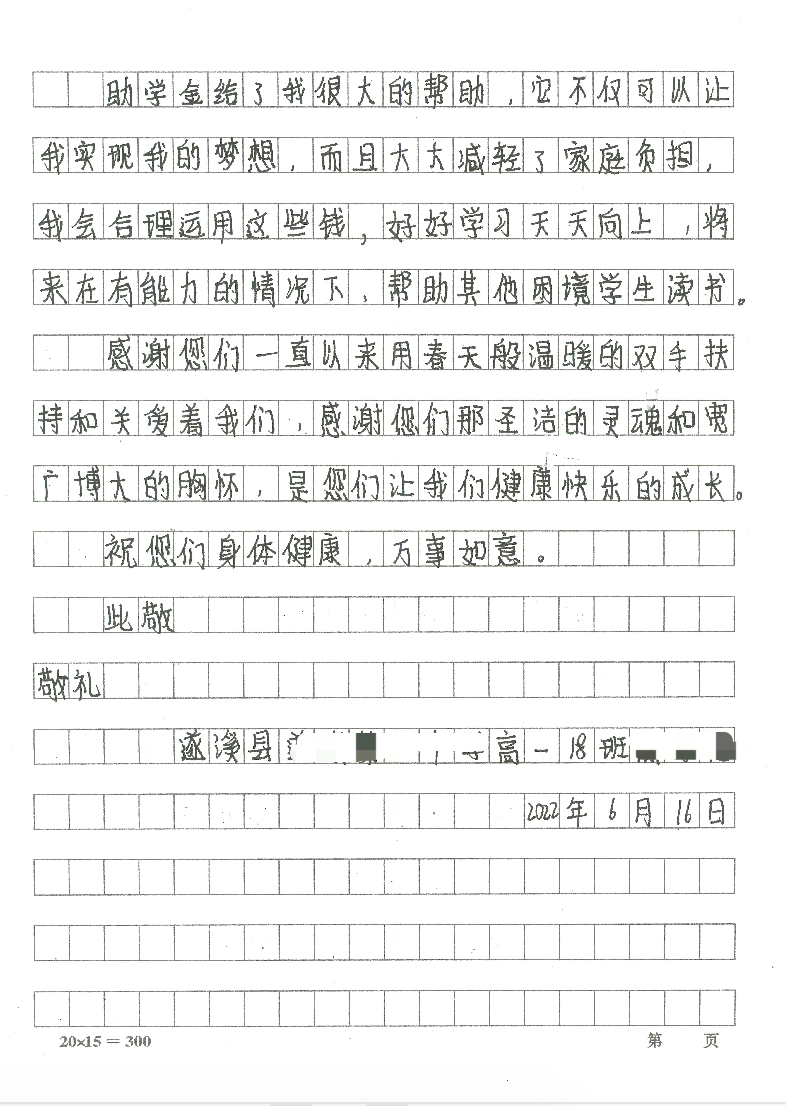 助学金给了我很大的帮助，它不仅可以让
我实现我的梦想，而且大大减轻了家庭负担，
我会合理运用这些钱，好好学习天天向上，将
来在有能力的情况下，帮助其他困境学生读书。
感谢您们一直以来用春天般温暖的双手扶
持和关爱着我们，感谢您们那圣洁的灵魂和宽
广博大的胸怀，是您们让我们健康快乐的成长。
祝您们身体健康，万事如意。
此敬
敬礼
遂溪县 高一18班
2022年6月16日
20×15＝300 第 页